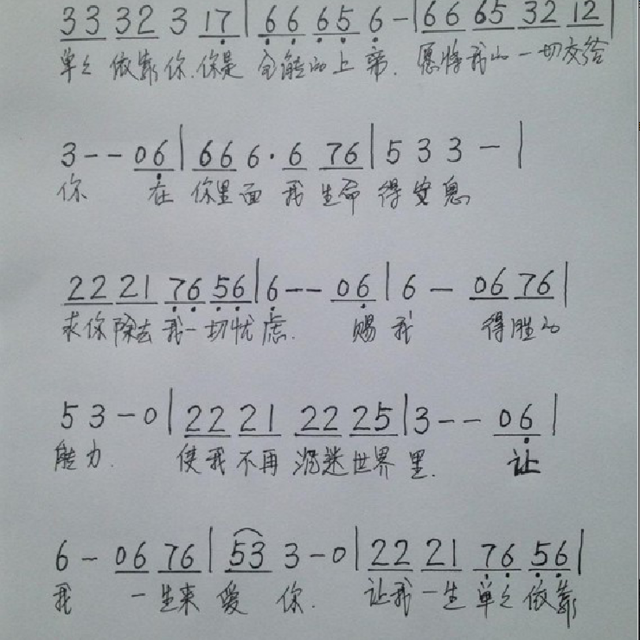 33 32 3 17 | 66 65 6 - | 66 65 32 12 |
单单 依靠你.你是 全能的上帝. 愿将我的一切交给
3 - - 06 | 66 6 · 6 76 | 5 3 3 - |
你 在 你里面 我 生命 得安息
22 21 76 56 | 6 - - 06 | 6 - 06 76 |
求你除去 我一切忧虑. 赐 我 得胜的
5 3 - 0 | 22 21 22 25 | 3 - - 06 |
能力. 使我不再 沉迷世界 里. 让
6 - 06 76 | 53 3 - 0 | 22 21 76 56 |
我 一生来 爱 你. 让我一生 单单依靠